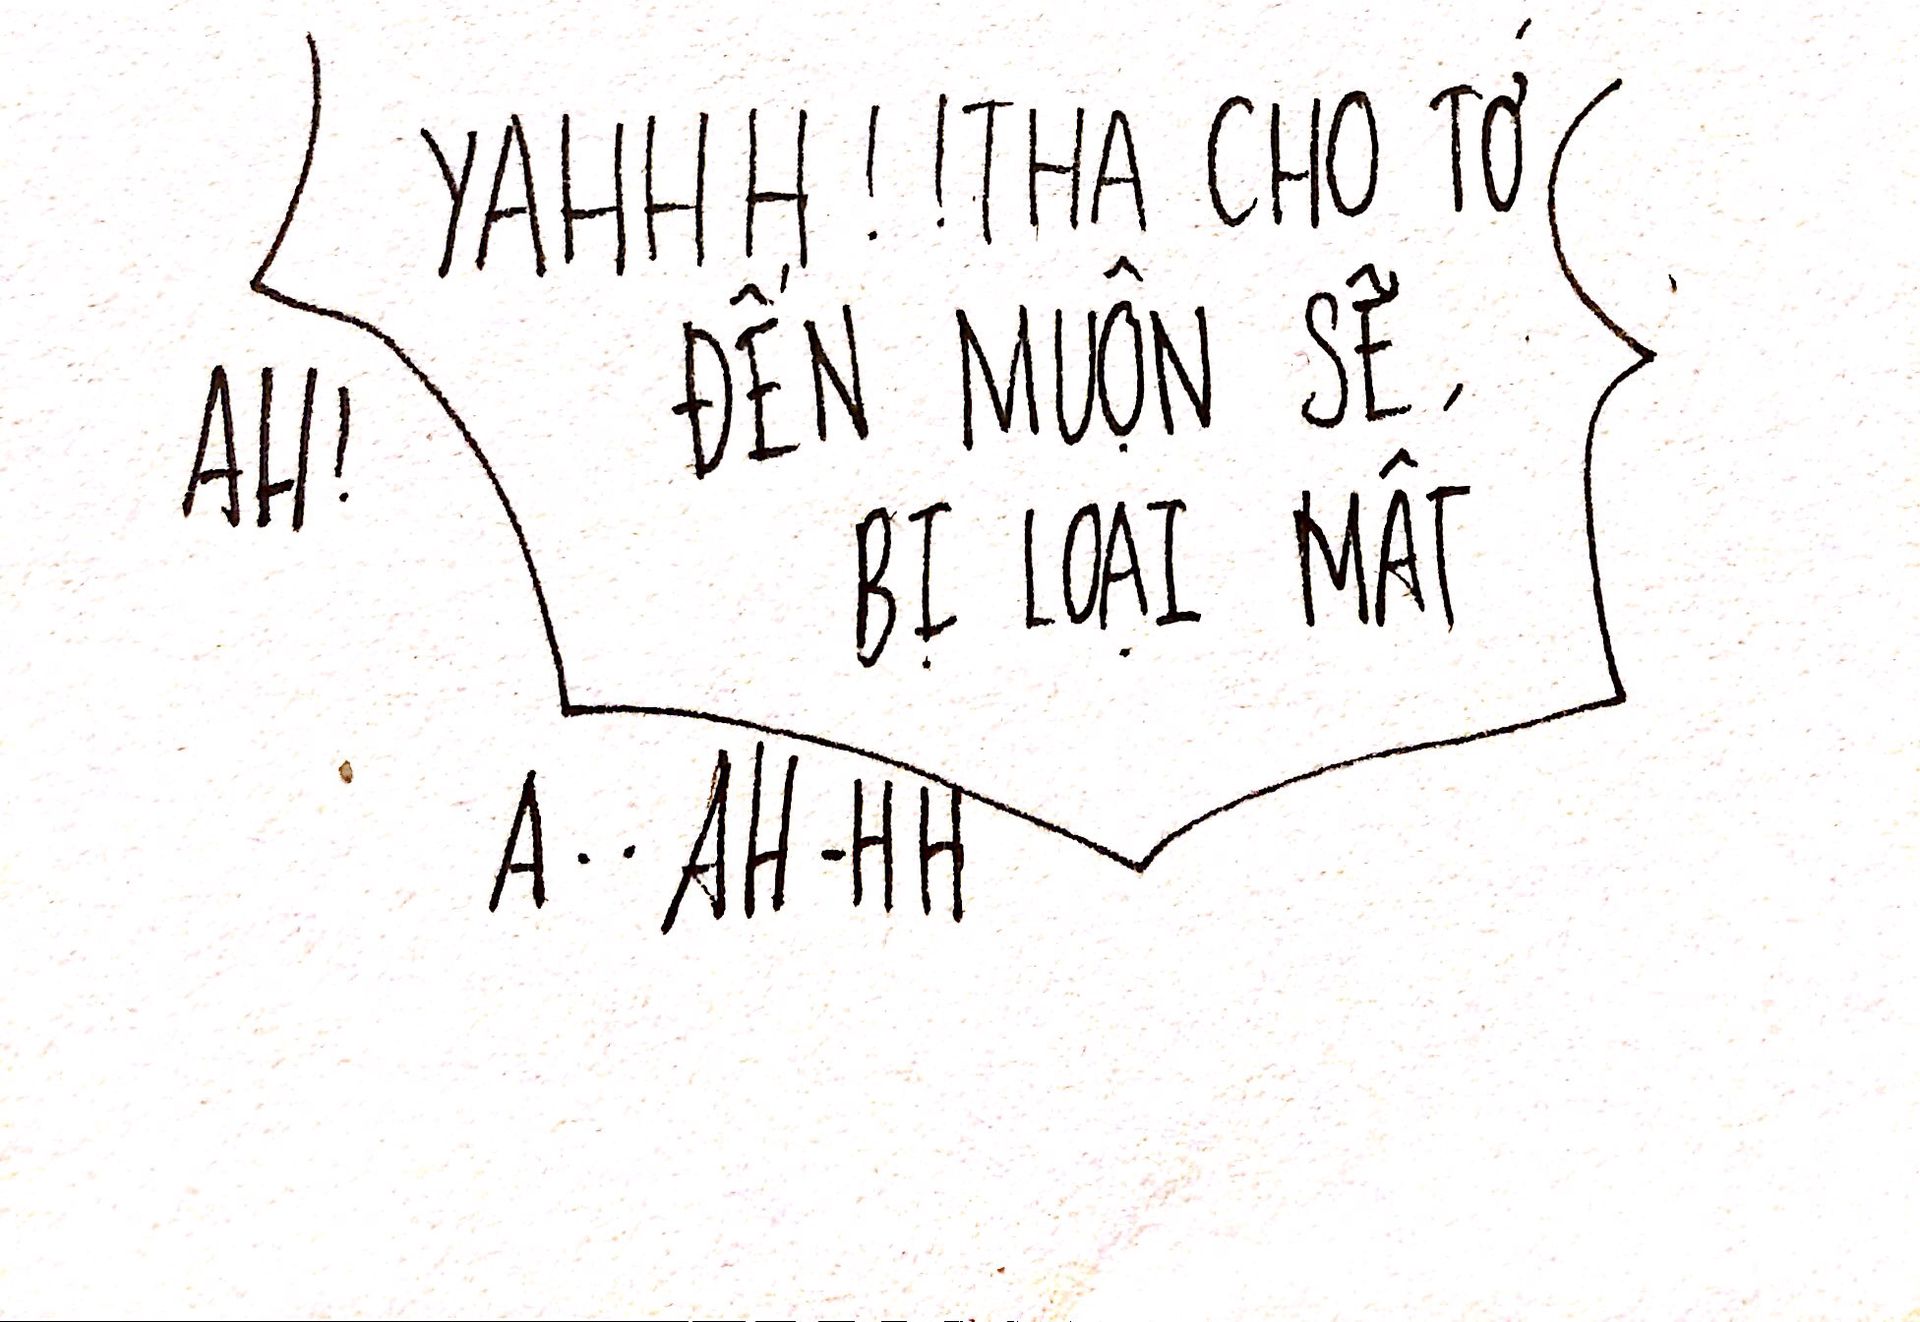 YAHHH!!THA CHO TỚ
ĐẾN MUỘN SẼ
BỊ LOẠI MẤT
AH!
A..AH-HH